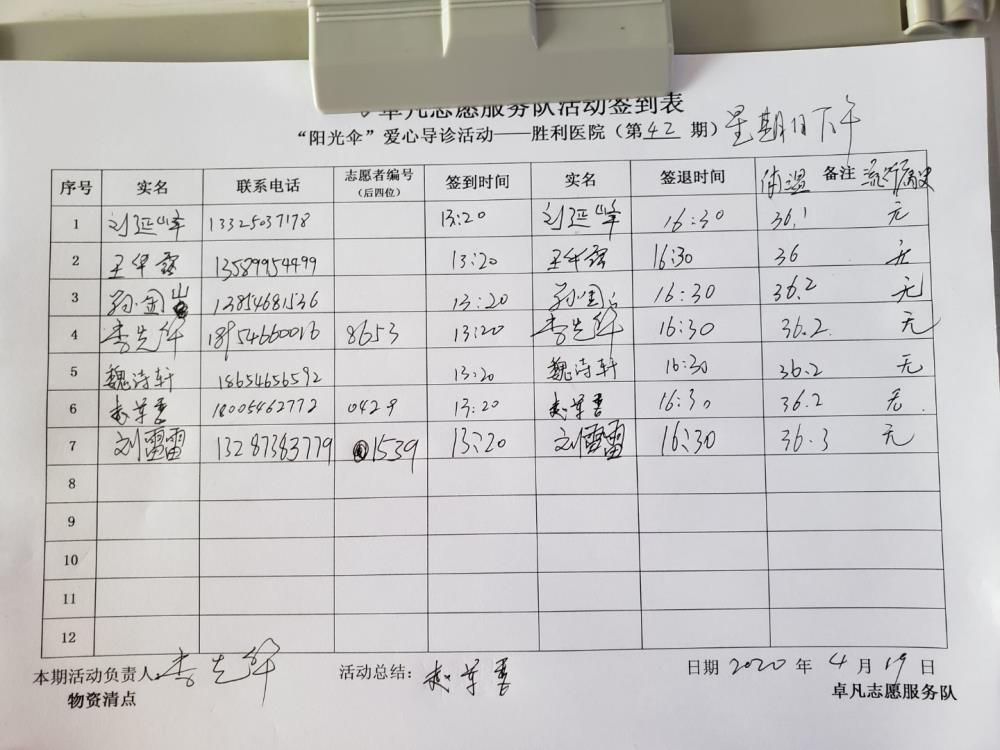 卓凡志愿服务队活动签到表
“阳光伞”爱心导诊活动——胜利医院（第42期）星期日下午
序号 实名 联系电话 志愿者编号（后四位） 签到时间 实名 签退时间 体温 备注 流行病史
1 刘延峰 13325037178 13:20 刘延峰 16:30 36.1 无
2 王华露 13589954499 13:20 王华露 16:30 36 无
3 孙国 13854681536 13:20 孙国 16:30 36.2 无
4 李先 18954660016 8653 13:20 李先 16:30 36.2. 无
5 魏诗轩 18654656592 13:20 魏诗轩 16:30 36.2 无
6 18005462772 0429 13:20 16:30 36.2 无
7 刘雷雷 13287383779 1539 13:20 刘雷雷 16:30 36.3 无
8
9
10
11
12
本期活动负责人: 李先 活动总结： 日期 2020 年 4 月 19 日
物资清点 卓凡志愿服务队